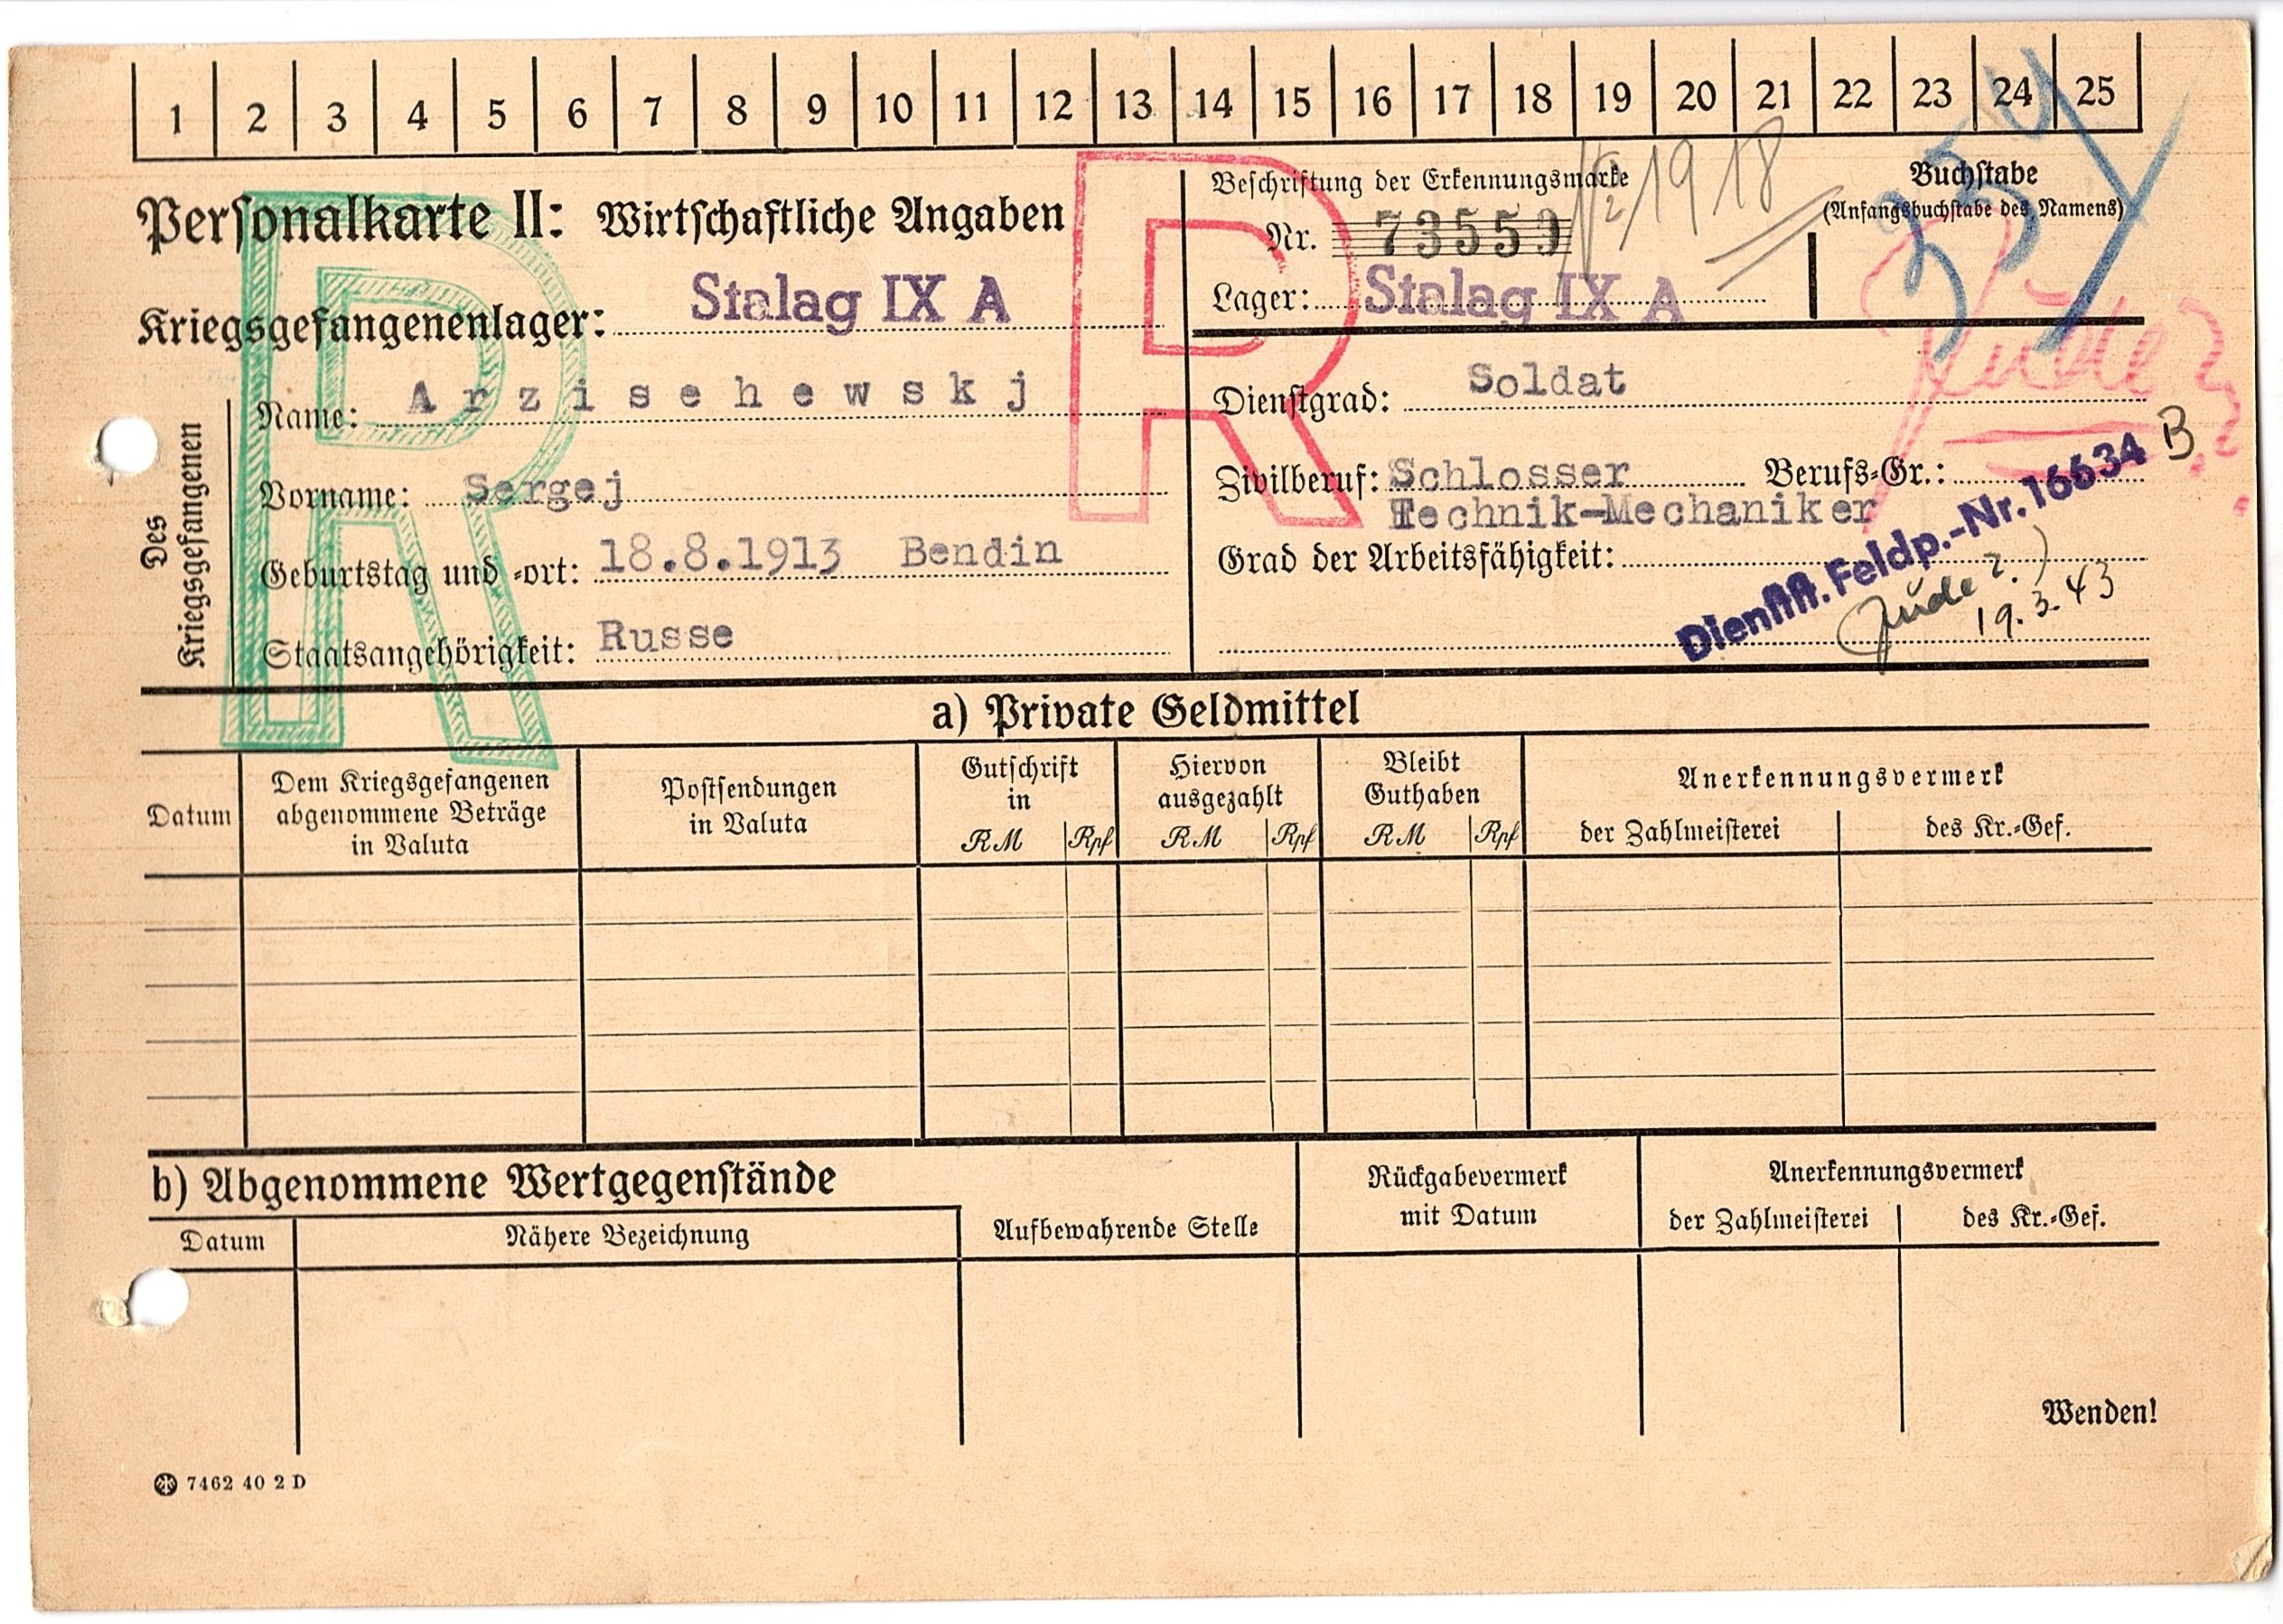 1 2 3 4 5 6 7 8 9 10 11 12 13 14 15 16 17 18 19 20 21 22 23 24 25
Personalkarte II: Wirtschaftliche Angaben
Beschriftung der Erkennungsmarke
Nr. 73559
1918
Lager: Stalag IX A
Buchstabe
(Anfangsbuchstabe des Namens)
Kriegsgefangenenlager: Stalag IX A
Des Kriegsgefangenen
Name: Arzisehewskj
Vorname: Sergej
Geburtstag und -ort: 18.8.1913 Bendin
Staatsangehörigkeit: Russe
Dienstgrad: Soldat
Jude?
Zivilberuf: Schlosser Berufs-Gr.: B
Technik-Mechaniker
Grad der Arbeitsfähigkeit:
Dienstst. Feldp.-Nr. 16634
Jude?
19.3.43
a) Private Geldmittel
Datum
Dem Kriegsgefangenen
abgenommene Beträge
in Valuta
Postsendungen
in Valuta
Gutschrift
in
RM Rpf
Hiervon
ausgezahlt
RM Rpf
Bleibt
Guthaben
RM Rpf
Anerkennungsvermerk
der Zahlmeisterei des Kr.-Gef.
b) Abgenommene Wertgegenstände
Datum Nähere Bezeichnung
Aufbewahrende Stelle
Rückgabevermerk
mit Datum
Anerkennungsvermerk
der Zahlmeisterei des Kr.-Gef.
Wenden!
7462 40 2 D